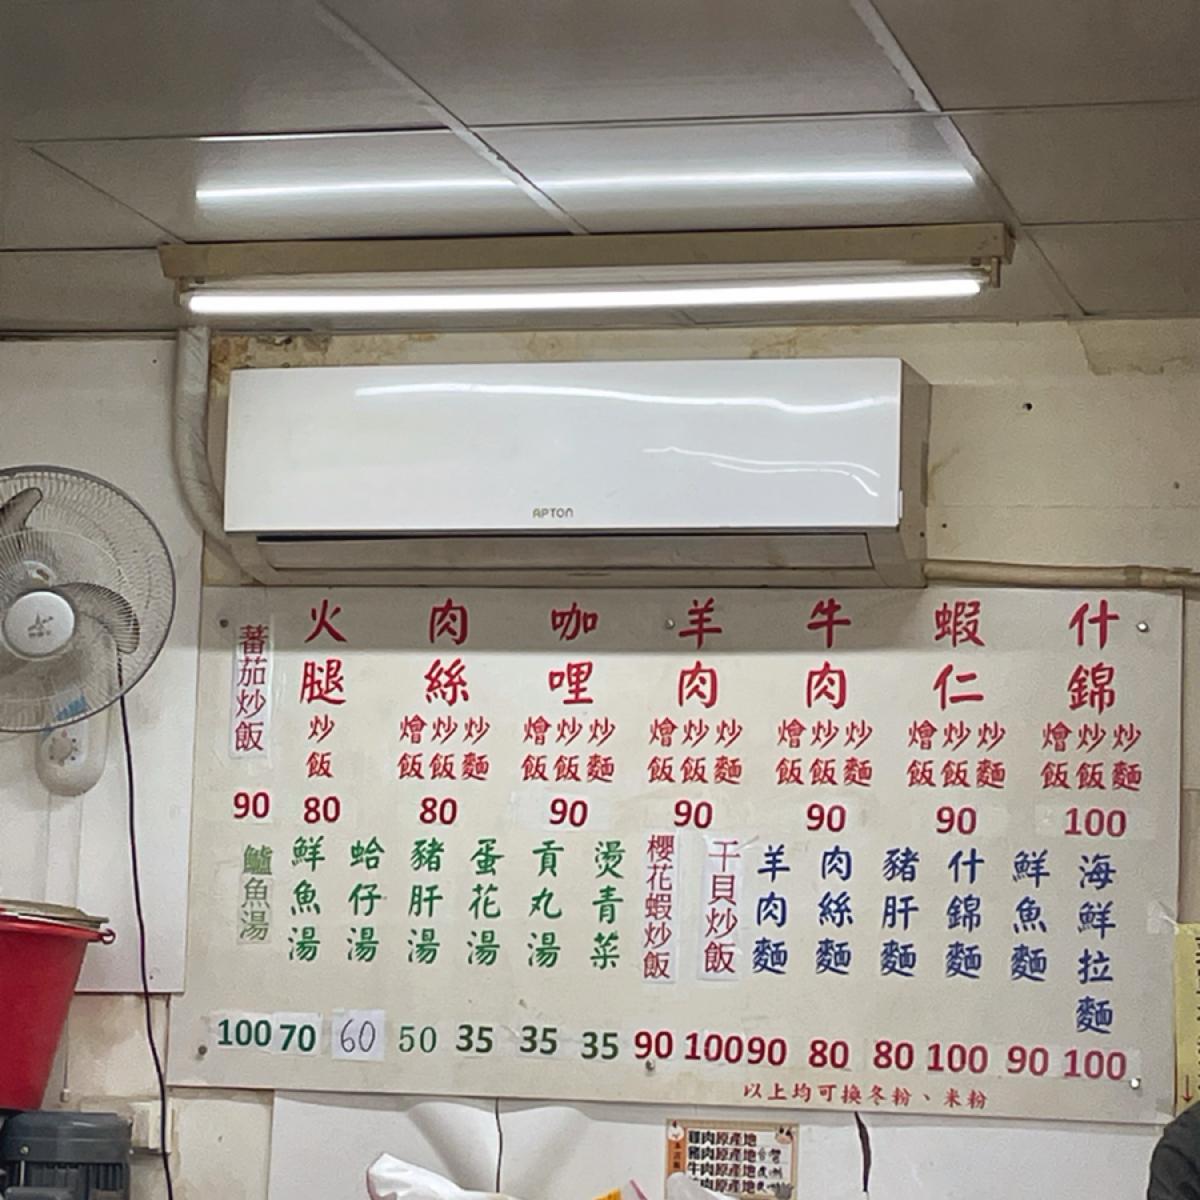 APTON
什錦 燴飯 炒飯 炒麵 100
蝦仁 燴飯 炒飯 炒麵 90
牛肉 燴飯 炒飯 炒麵 90
羊肉 燴飯 炒飯 炒麵 90
咖哩 燴飯 炒飯 炒麵 90
肉絲 燴飯 炒飯 炒麵 80
火腿 炒飯 80
蕃茄炒飯 90
海鮮拉麵 100
鮮魚麵 90
什錦麵 100
豬肝麵 80
肉絲麵 80
羊肉麵 90
干貝炒飯 100
櫻花蝦炒飯 90
燙青菜 35
貢丸湯 35
蛋花湯 35
豬肝湯 50
蛤仔湯 60
鮮魚湯 70
鱸魚湯 100
以上均可換冬粉、米粉
雞肉原產地
豬肉原產地台灣
牛肉原產地